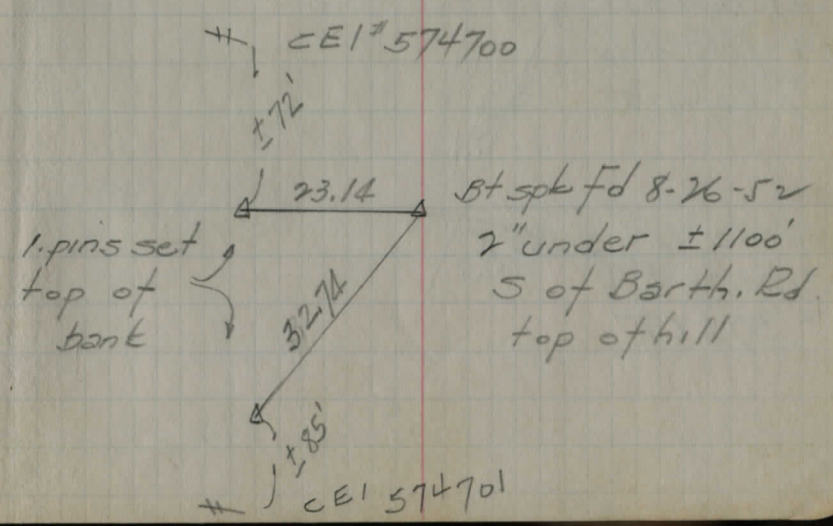 CEI # 574700
±72'
23.14
Bt spk Fd 8-26-52
2" under ±1100'
S of Barth. Rd.
top of hill
1. pins set
top of
bank
32.74
±85'
CEI 574701